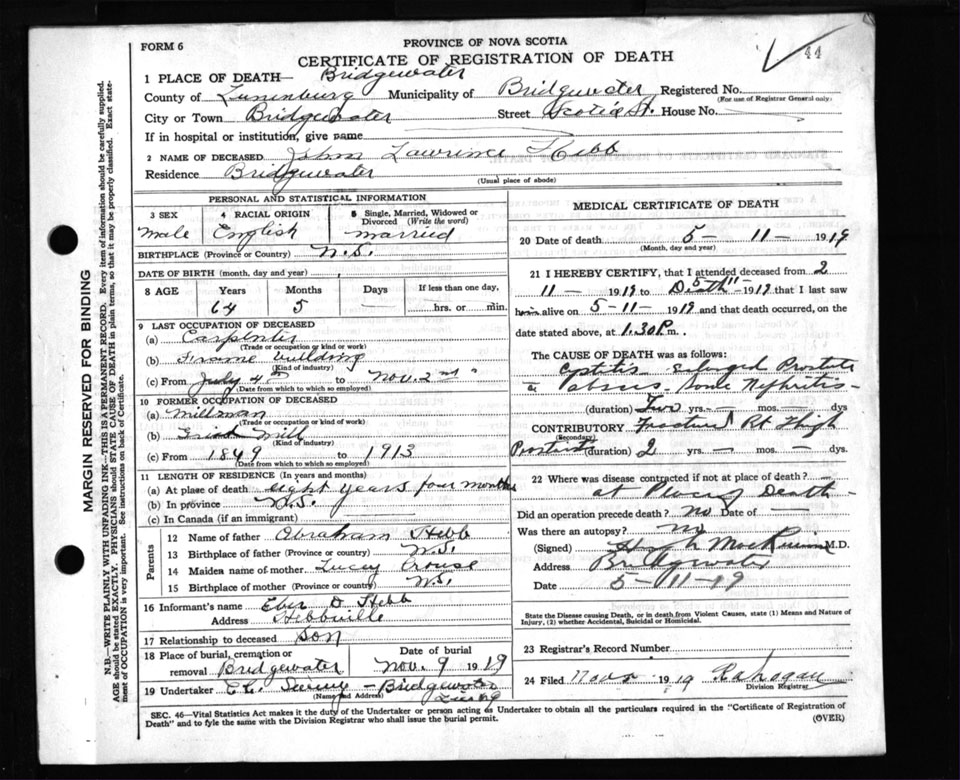 FORM 6
PROVINCE OF NOVA SCOTIA
CERTIFICATE OF REGISTRATION OF DEATH
44
1 PLACE OF DEATH— Bridgewater
County of Lunenburg Municipality of Bridgewater Registered No.
(For use of Registrar General only)
City or Town Bridgewater Street Scotia St. House No.
If in hospital or institution, give name
2 NAME OF DECEASED John Lawrence Hebb
Residence Bridgewater
(Usual place of abode)
PERSONAL AND STATISTICAL INFORMATION
3 SEX 4 RACIAL ORIGIN 5 Single, Married, Widowed or Divorced (Write the word)
Male English Married
BIRTHPLACE (Province or Country) N.S.
DATE OF BIRTH (month, day and year)
8 AGE Years Months Days If less than one day,
64 5 — hrs. or min.
9 LAST OCCUPATION OF DECEASED
(a) Carpenter
(Trade or occupation or kind or work)
(b) Frame building
(Kind of industry)
(c) From July 4th to Nov. 2nd
(Date from which to which so employed)
10 FORMER OCCUPATION OF DECEASED
(a) Millman
(Trade or occupation or kind of work)
(b) Mill
(Kind of industry)
(c) From 1849 to 1913
(Date from which to which so employed)
11 LENGTH OF RESIDENCE (In years and months)
(a) At place of death eight years four months
(b) In province N.S.
(c) In Canada (if an immigrant)
Parents
12 Name of father Abraham Hebb
13 Birthplace of father (Province or country) N.S.
14 Maiden name of mother Lucey Crouse
15 Birthplace of mother (Province or country) N.S.
16 Informant's name Eber D. Hebb
Address Hebbville
17 Relationship to deceased Son
18 Place of burial, cremation or removal Bridgewater
Date of burial Nov. 9 1919
19 Undertaker — Bridgewater
(Name and Address)
MEDICAL CERTIFICATE OF DEATH
20 Date of death 5 — 11 — 1919
(Month, day and year)
21 I HEREBY CERTIFY, that I attended deceased from 2
11 — 1919 to Death 5 - 11 - 1919 that I last saw
him alive on 5-11- 1919 and that death occurred, on the
date stated above, at 1.30 P.m.
The CAUSE OF DEATH was as follows:
Cystitis — Enlarged Prostate
Some Nephritis —
(duration) Two yrs. — mos. — dys
CONTRIBUTORY Fractured Rt Thigh
(Secondary)
(duration) 2 yrs. — mos. — dys.
22 Where was disease contracted if not at place of death?
at Place of Death —
Did an operation precede death? No Date of —
Was there an autopsy? No
(Signed) Hugh M.D.
Address Bridgewater
Date 5-11-19
State the Disease causing Death, or in death from Violent Causes, state (1) Means and Nature of
Injury, (2) whether Accidental, Suicidal or Homicidal.
23 Registrar's Record Number
24 Filed 1919
Division Registrar
SEC. 46—Vital Statistics Act makes it the duty of the Undertaker or person acting as Undertaker to obtain all the particulars required in the "Certificate of Registration of
Death" and to fyle the same with the Division Registrar who shall issue the burial permit.
(OVER)
MARGIN RESERVED FOR BINDING
N.B.—WRITE PLAINLY WITH UNFADING INK—THIS IS A PERMANENT RECORD. Every item of information should be carefully supplied.
AGE should be stated EXACTLY. PHYSICIANS should STATE CAUSE OF DEATH in plain terms, so that it may be properly classified. Exact state-
ment of OCCUPATION is very important. See instructions on back of Certificate.